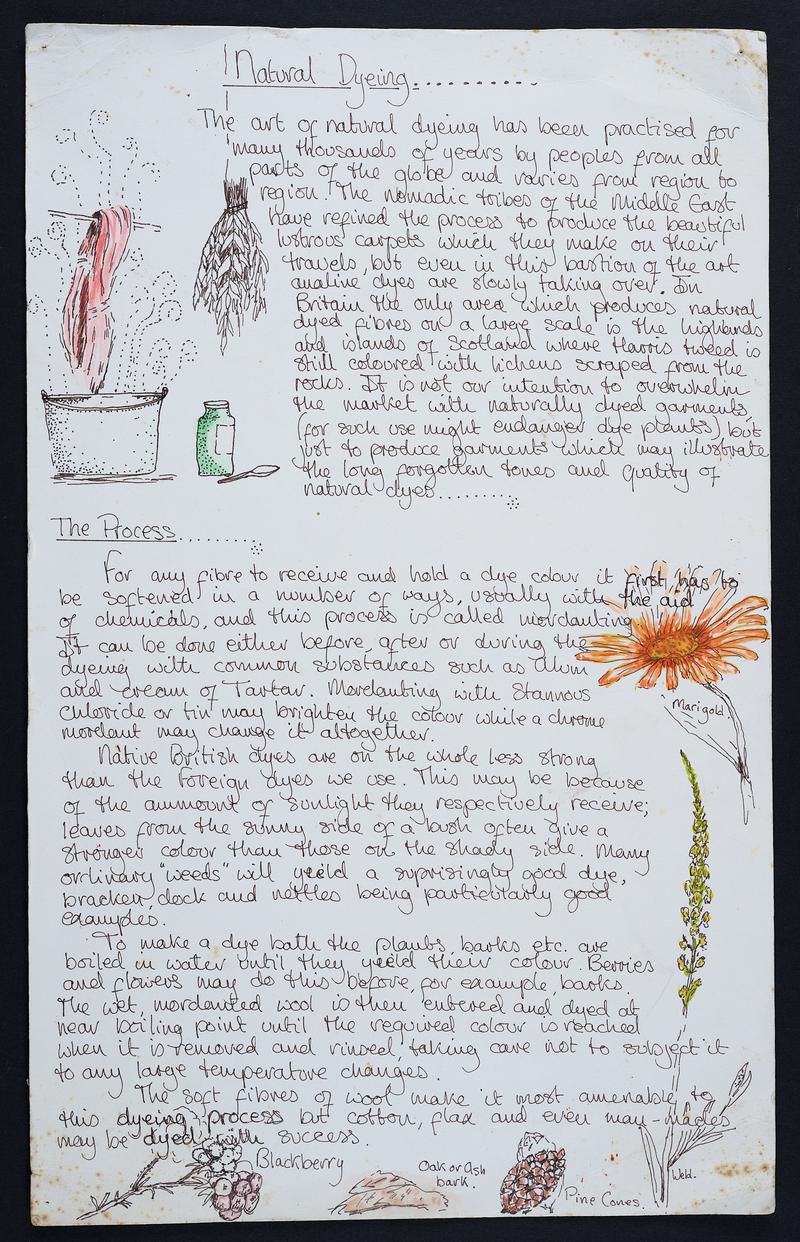 Natural Dyeing..............
The art of natural dyeing has been practised for
many thousands of years by peoples from all
parts of the globe and varies from region to
region. The nomadic tribes of the Middle East
have refined the process to produce the beautiful
lustrous carpets which they make on their
travels, but even in this bastion of the art
analine dyes are slowly taking over. In
Britain the only area which produces natural
dyed fibres on a large scale is the highlands
and islands of Scotland where Harris tweed is
still coloured with lichens scraped from the
rocks. It is not our intention to overwhelm
the market with naturally dyed garments,
(for such use might endanger dye plants) but
just to produce garments which may illustrate
the long forgotten tones and quality of
natural dyes..........
The Process..........
For any fibre to receive and hold a dye colour it first has to
be softened in a number of ways, usually with the aid
of chemicals, and this process is called mordanting.
It can be done either before, after or during the
dyeing with common substances such as Alum
and Cream of Tartar. Mordanting with Stannous
chloride or tin may brighten the colour while a chrome
mordant may change it altogether.
Native British dyes are on the whole less strong
than the foreign dyes we use. This may be because
of the ammount of sunlight they respectively receive;
leaves from the sunny side of a bush often give a
stronger colour than those on the shady side. Many
ordinary "weeds" will yeild a surprisingly good dye,
bracken, dock and nettles being particularly good
examples.
To make a dye bath the plants, barks etc. are
boiled in water until they yeild their colour. Berries
and flowers may do this before, for example, barks.
The wet, mordanted wool is then entered and dyed at
near boiling point until the required colour is reached
when it is removed and rinsed, taking care not to subject it
to any large temperature changes.
The soft fibres of wool make it most amenable to
this dyeing process but cotton, flax and even man-mades
may be dyed with success.
Marigold
Blackberry
Oak or Ash
bark.
Pine Cones.
Weld.